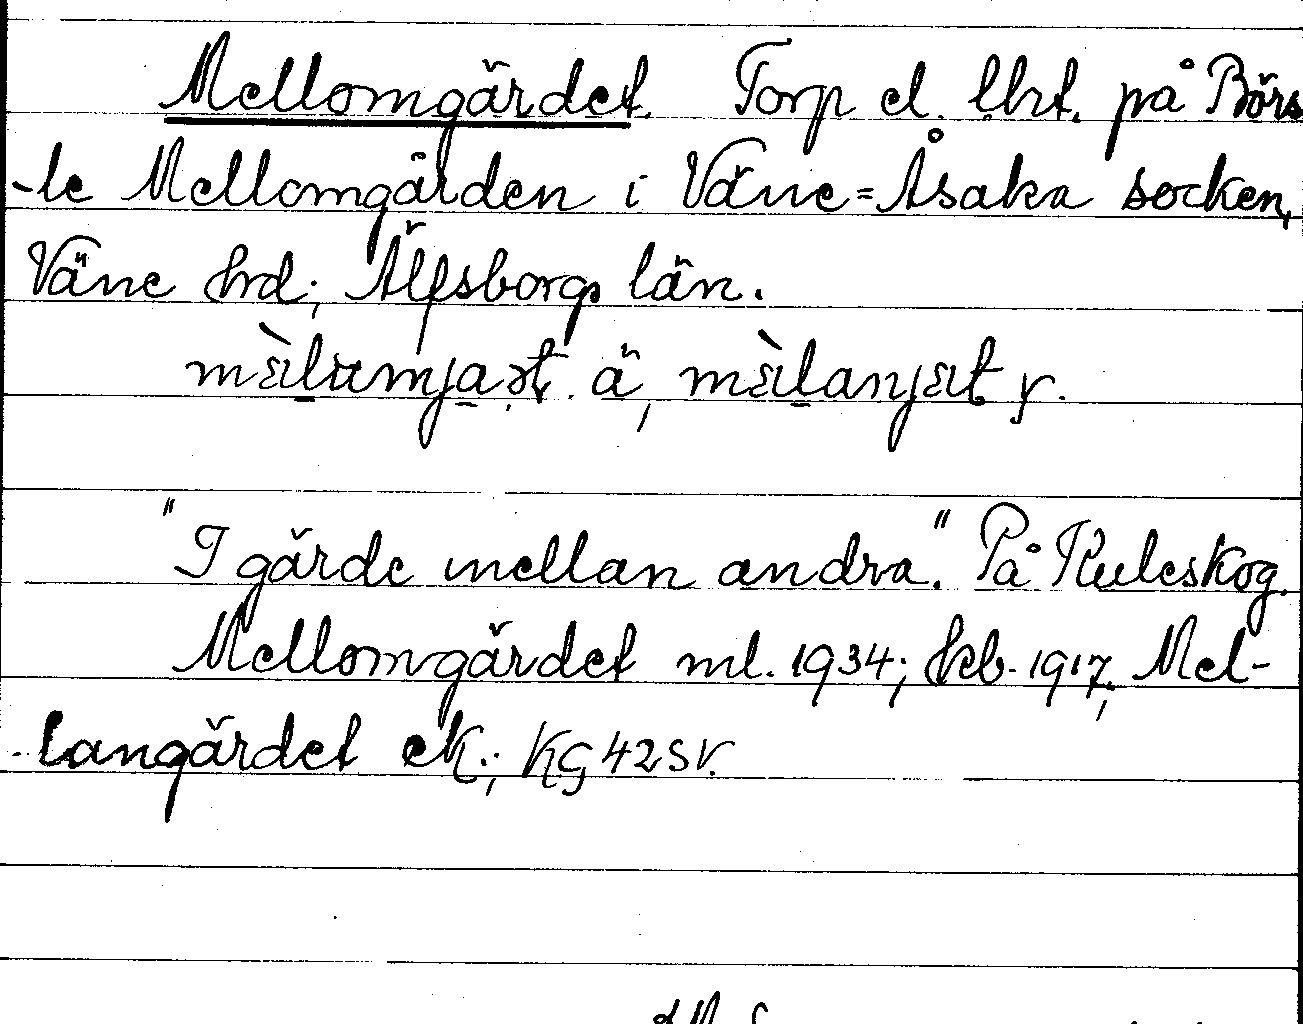 Mellomgärdet. Torp el. lht. på Börs
-le Mellomgården i Väne=Åsaka socken,
Väne hrd; Älfsborgs län.
ä, y.
"I gärde mellan andra." På Kuleskog.
Mellomgärdet ml. 1934; hcb. 1917; Mel-
-langärdet ek.; KG 42 SV.